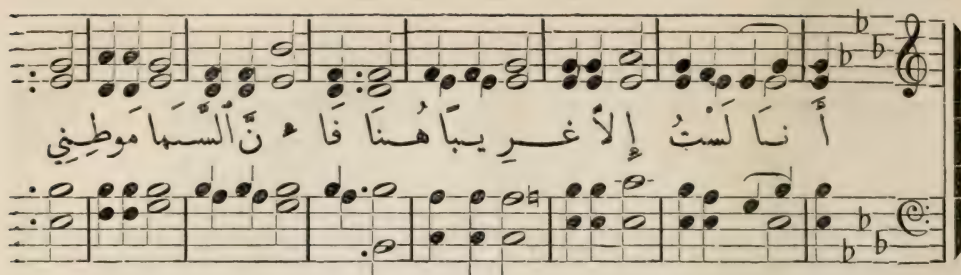 أَ نَا لَسْتُ إِلاَّ غَـرِ يـبـاً هُـنَا فَا ۽ نَّ ٱلسَّـمَا مَوطِنِي